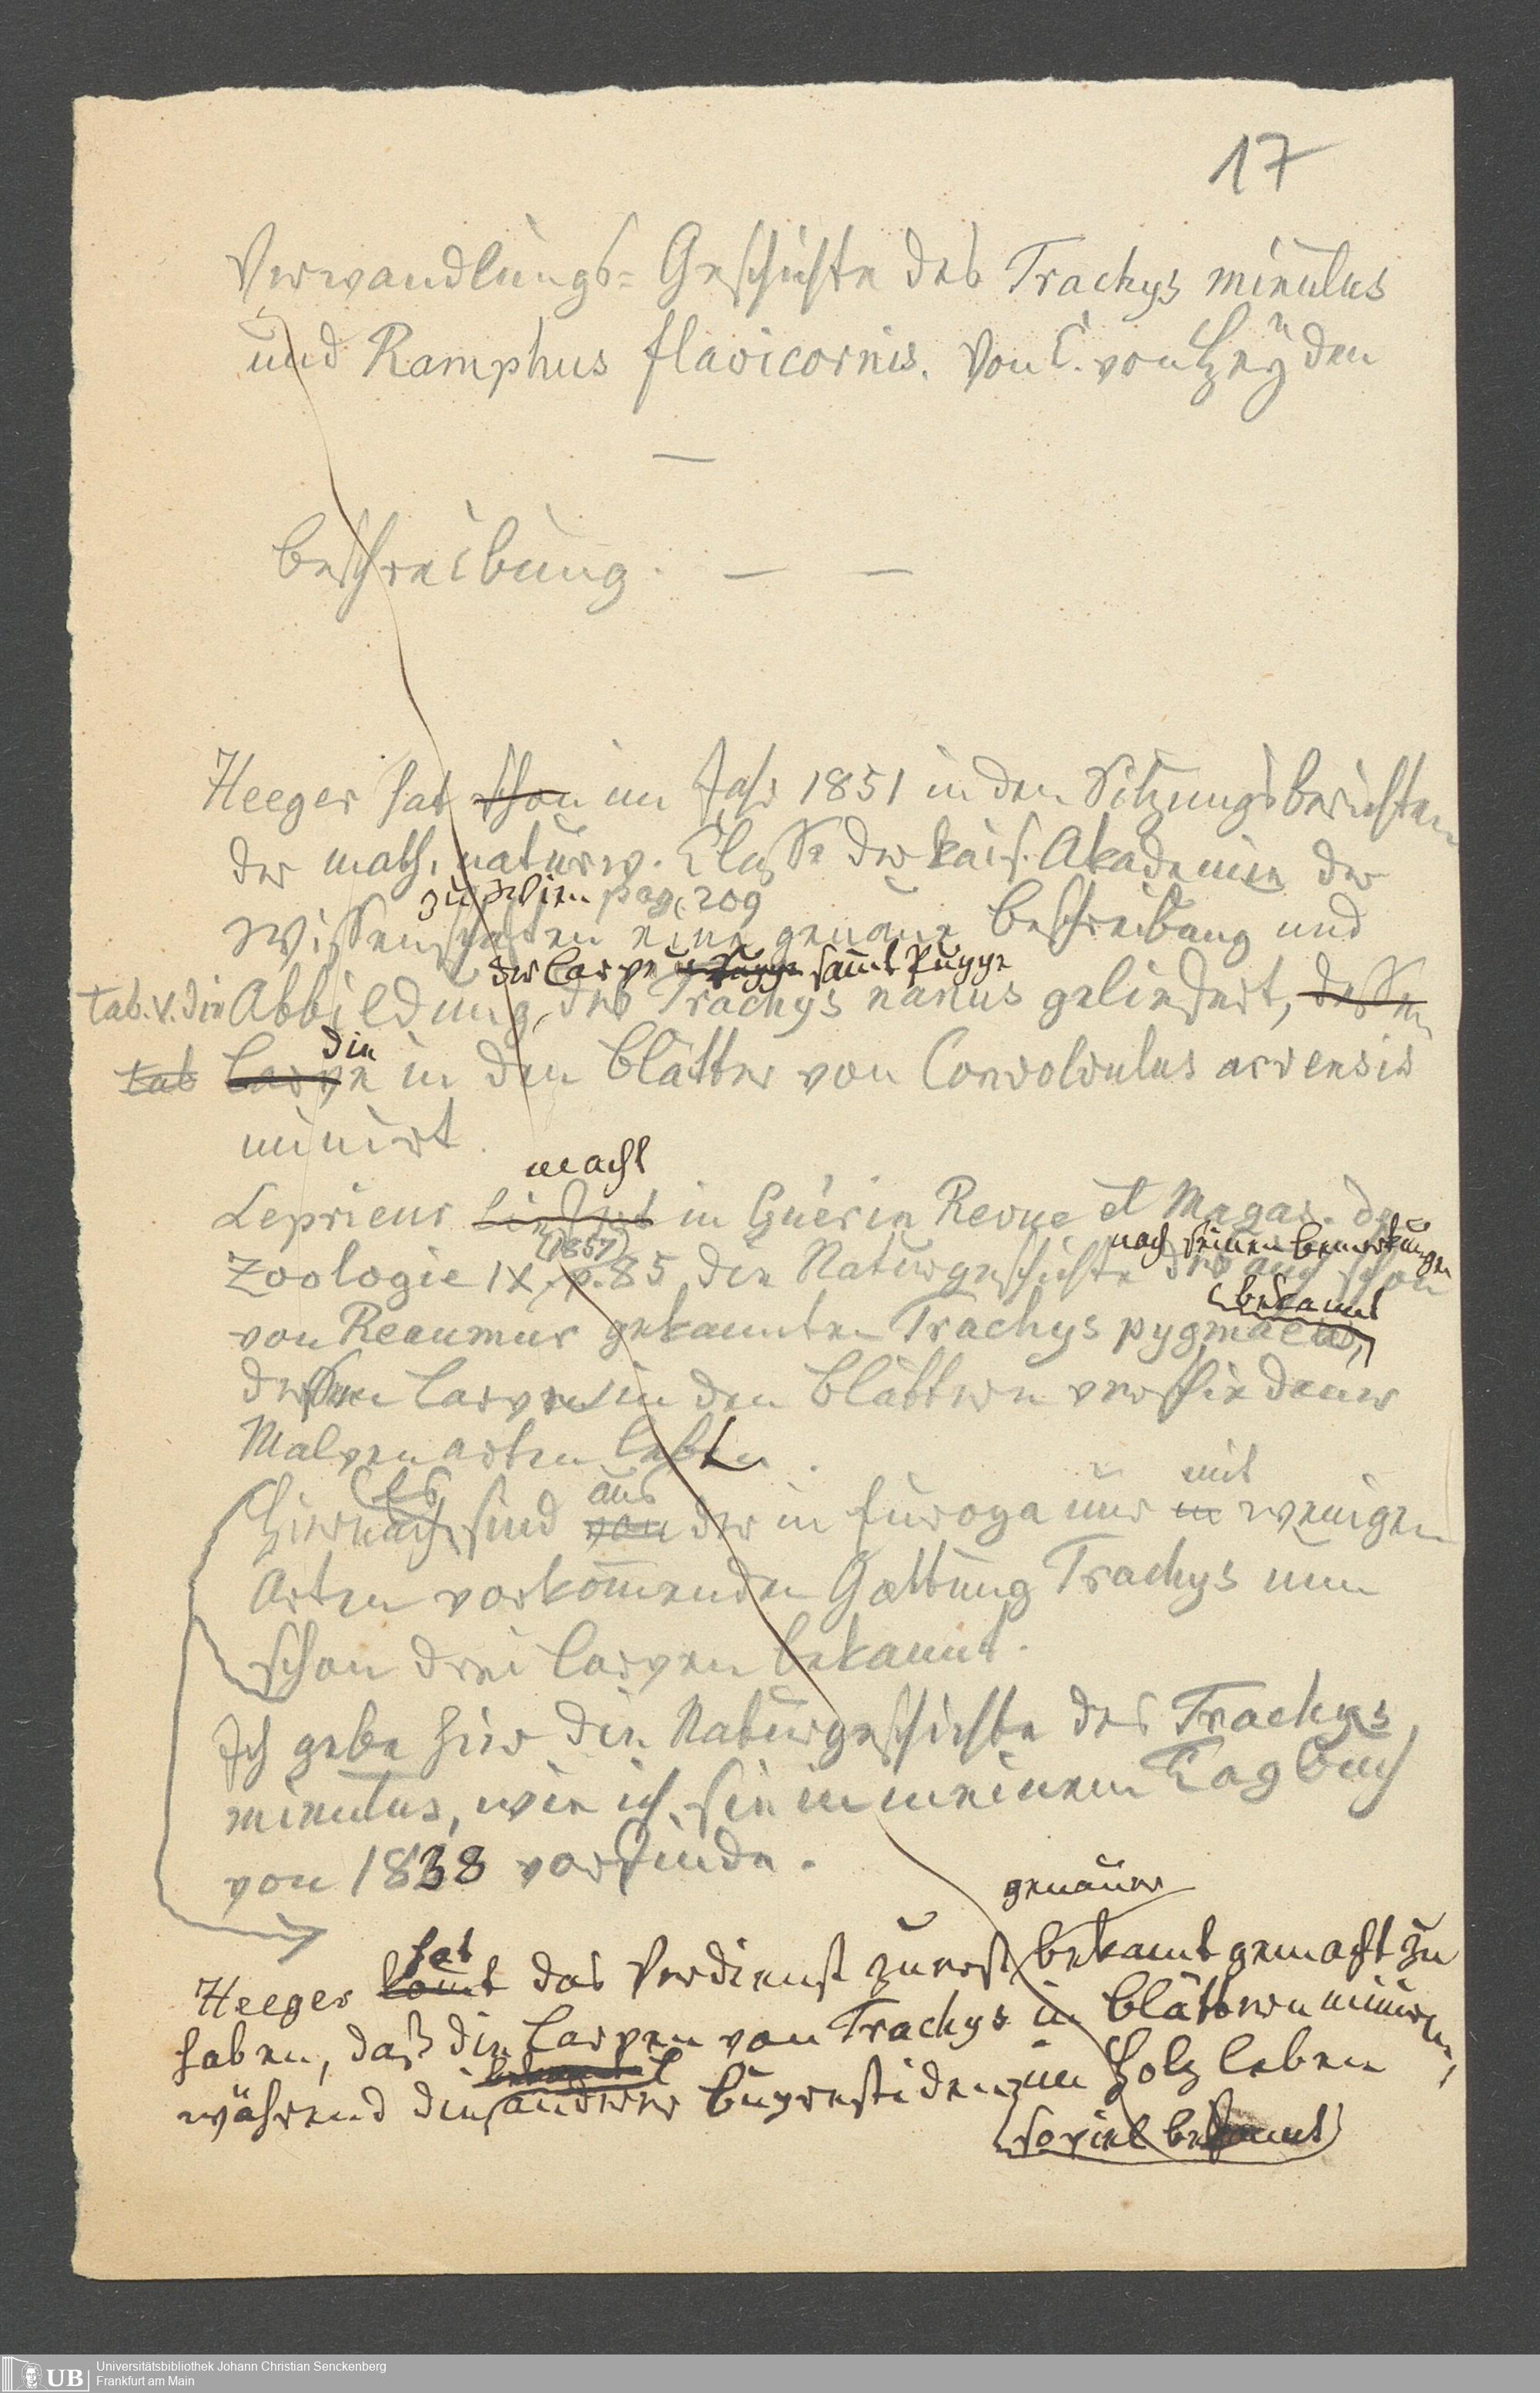 17
Verwandlungs= Geschichte des Trachys minutus
und Ramphus flavicornis. Von C. von Heyden
Beschreibung. — —
Heeger hat schon im Jahr 1851 in den Sitzungsberichten
der math. naturw. Classe der kais. Akademie der
zu Wien pag. 209
Wissenschaften eine genaue Beschreibung und
der Larve u Puppe sammt Puppe
tab. V. die Abbildung des Trachys nanus geliefert, dessen
die
tab Larve in den Blätter von Convolvulus arvensis
minirt.
macht
Leprieur liefert in Guérin Revue et Magas. de
(1857) nach seinen Bemerkungen
Zoologie IX. p. 85 die Naturgeschichte des auch schon
bekannt
von Reaumur gekannten Trachys pygmaea,
dessen Larven in den Blättern verschiedener
Malvenarten lebt.
Es aus mit
Hiernach sind von der in Europa nur in wenigen
Arten vorkommenden Gattung Trachys nun
schon drei Larven bekannt.
Ich gebe hier die Naturgeschichte des Trachys
minutus, wie ich sie in meinem Tagbuch
von 1838 vorfinde.
genauer
hat
Heeger kommt das Verdienst zuerst bekannt gemacht zu
haben, daß die Larven von Trachys in Blättern miniren,
bekannt
während die anderer Buprestiden im Holz leben
soviel bekannt
Universitätsbibliothek Johann Christian Senckenberg
Frankfurt am Main
UB